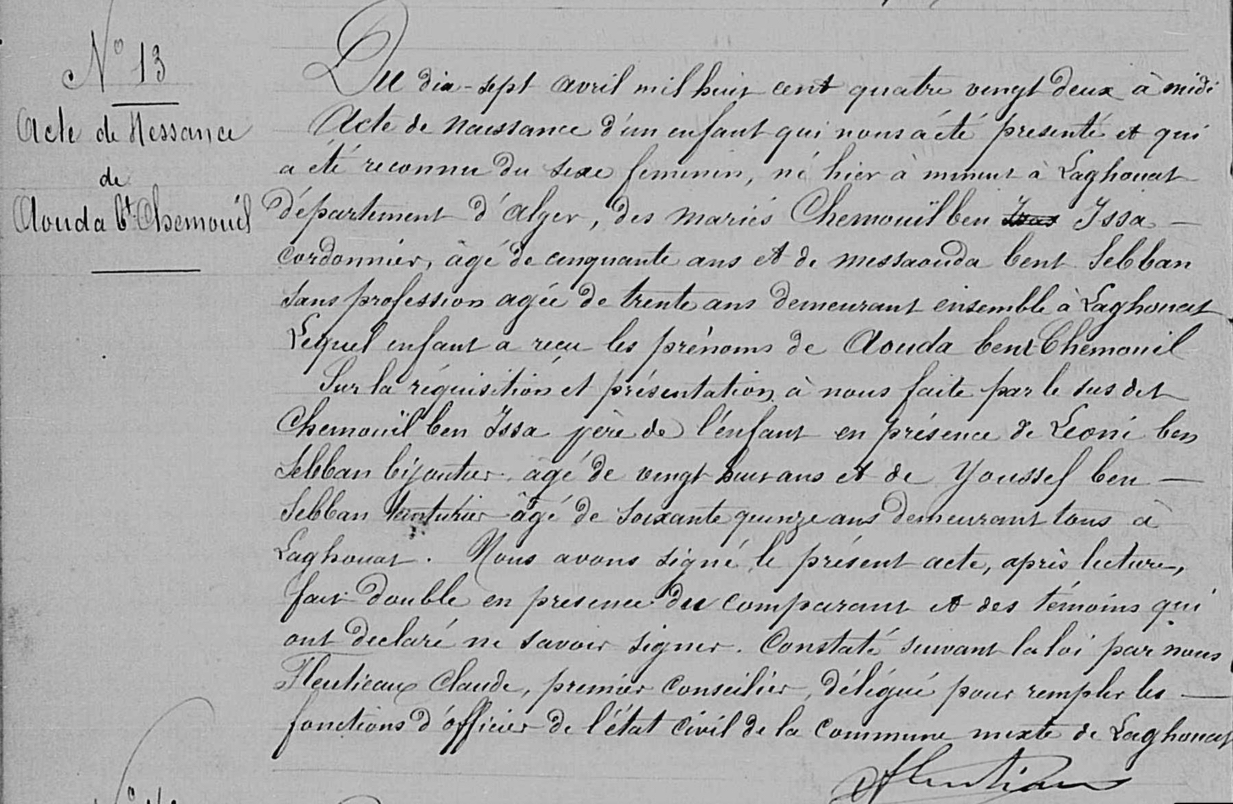 N° 13
Acte de Nessance
de
Aouda bt Chemouïl
Du dix-sept avril mil huit cent quatre vingt deux à midi
Acte de naissance d'un enfant qui nous a été présenté et qui
a été reconnu du sexe feminin, né hier à minuit à Laghouat
département d'Alger, des mariés Chemouïl ben Issa —
cordonnier, âgé de cinquante ans et de Messaouda bent Sebban
sans profession agée de trente ans demeurant ensemble à Laghouat
Lequel enfant a recu les prénoms de Aouda bent Chemouil
Sur la réquisition et présentation à nous faite par le sus dit
Chemouïl ben Issa père de l'enfant en présence de Leoni ben
Sebban bijoutier âgé de vingt huit ans et de Youssef ben —
Sebban teinturier âgé de soixante quinze ans demeurant tous à
Laghouat. Nous avons signé le présent acte, après lecture,
fait double en presence du comparant et des témoins qui
ont declaré ne savoir signer. Constaté suivant la loi par nous
Fleutieaux Claude, premier Conseilier, délégué pour remplir les —
fonctions d'officier de l'état civil de la commune mixte de Laghouat